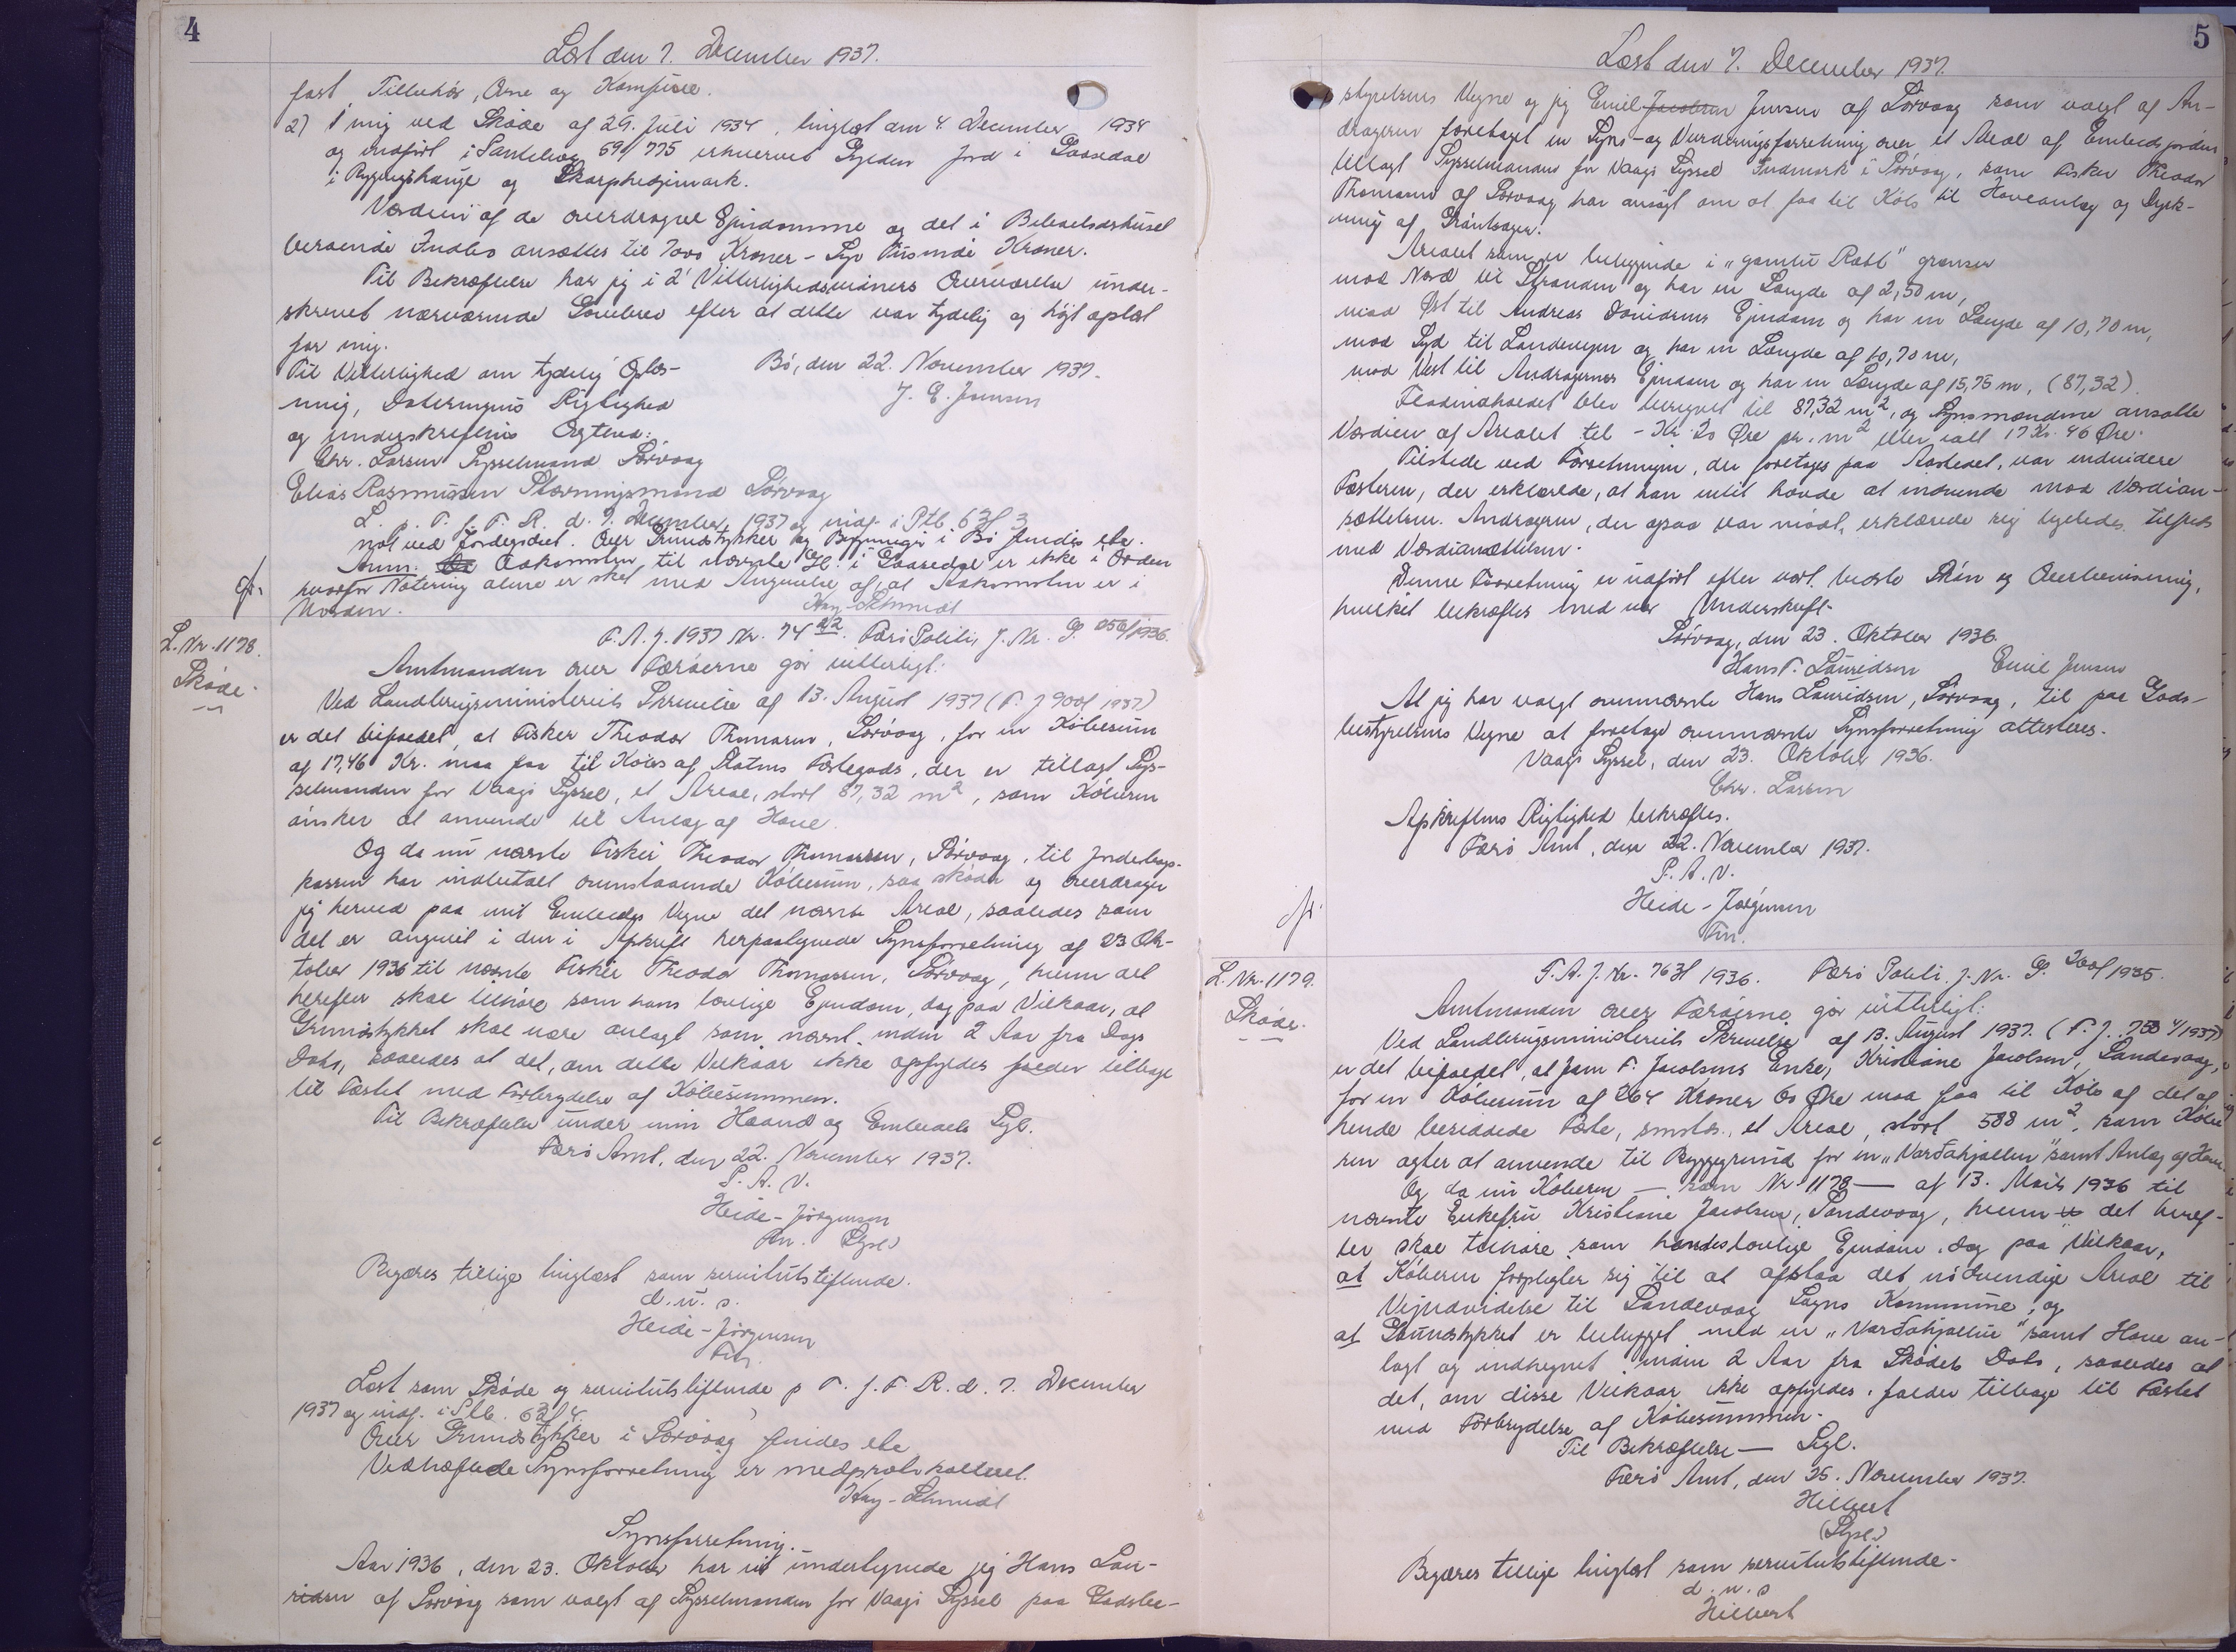 4
Læst den 7. December 1937.
fast Tilbehör, Ovne og Komfurer.
2) mig ved Sköde af 29. Juli 1934, tinglæst den 4. December 1934
og indfört i Panteb. 59/775 erhvervet Gylden Jord i
i og
Værdien af de overdragne Ejendomme og det i Beboelseshuset
beroende Indbo ansættes til 7000 Kroner - Syv Tusinde Kroner.
Til Bekræftelse har jeg i 2 Vitterlighedsvidners Overværelse under-
skrevet nærværende Gavebrev efter at dette var tydelig og höjt oplæst
for mig.
Bö, den 22. November 1937.
J. E. Joensen
Til Vitterlighed om tydelig Oplæs-
ning, Dateringens Rigtighed
og Underskriftens Ægthed:
Chr. Larsen Sysselmand Sörvaag
Elias Rasmussen Stævningsmand Sörvaag
L. p. T. f. F. R. d. 7. December 1937 og indf. i Ptb. 63/3
not ved Jordegodset. Over Grundstykker og Bygninger i Bö findes etc.
Anm. Adkomsten til nævnte Hl. i er ikke i Orden
hvorfor Notering alene er sket med Angivelse af, at Adkomsten er i
Uorden.
Kay-Schmidt
cfr.
L. Nr. 1178.
Sköde.
F. A. J. 1937 Nr. 74 Færö Politi, J. Nr. G. 256/1936.
Amtmanden over Færöerne gör vitterligt:
Ved Landbrugsministeriets Skrivelse af 13. August 1937 (F. J 900/1937)
er det bifaldet, at Fisker Theodor Thomassen, Sörvaag, for en Köbesum
af 17,46 Kr. maa faa til Köbs af Statens Fæstegods, der er tillagt Sys-
selmanden for Vaagö Syssel, et Areal, stort 87,32 m², som Köberen
önsker at anvende til Anlæg af Have.
Og da nu nævnte Fisker Theodor Thomassen, Sörvaag, til Jordebogs-
kassen har indbetalt ovenstaaende Köbesum, saa sköder og overdrager
jeg herved paa mit Embeds Vegne det nævnte Areal, saaledes som
det er angivet i den i Afskrift herpaategnede Synsforretning af 23 Ok-
tober 1936 til nævnte Fisker Theodor Thomassen, Sörvaag, hvem det
herefter skal tilhöre som hans lovlige Ejendom, dog paa Vilkaar, at
Grundstykket skal være anlagt som nævnt inden 2 Aar fra Dags
Dato, saaledes at det, om dette Vilkaar ikke opfyldes falder tilbage
til Fæstet med Fortrydelse af Köbesummen.
Til Bekræftelse under min Haand og Embedets Segl.
Færö Amt, den 22. November 1937.
P. A. V.
Heide-Jörgensen
Fm. (Segl.)
Begæres tillige tinglæst som servitutstiftende.
d. u. s.
Heide-Jörgensen
Fm.
Læst som Sköde og servitutstiftende p F. f. F. R. d. 7. December
1937 og indf. i Ptb. 63/4.
Over Grundstykker i Sörvaag findes etc
Vedhæftede Synsforretning er medprotokolleret.
Kay-Schmidt
Synsforretning.
Aar 1936, den 23. Oktober har vi undertegnede jeg Hans Lau-
ridsen af Sörvaag som valgt af Sysselmanden for Vaagö Syssel paa Godsbe-
5
Læst den 7. December 1937.
styrelsens Vegne og jeg Emil Jacobsen Jensen af Sörvaag som valgt af An-
drageren foretaget en Syns- og Vurderingsforretning over et Areal af Embedsjorden
tillagt Sysselmanden for Vaagö Syssel Indmark i Sörvaag, som Fisker Theodor
Thomassen af Sörvaag har ansögt om at faa til Köbs til Haveanlæg og Dyrk-
ning af Gröntsager.
Arealet som er beliggende i "gamlu Rætt" grænser
mod Nord til Stranden og har en Længde af 2,50 m,
mod Öst til Andreas Davidsens Ejendom og har en Længde af 10,70 m,
mod Syd til Landevejen og har en Længde af 10,70 m,
mod Vest til Andragernes Ejendom og har en Længde af 15,75 m, (87,32)
Fladeindholdet blev beregnet til 87,32 m², og Synsmændene ansatte
Værdien af Arealet til - Kr. 20 Öre pr. m² eller ialt 17 Kr. 46 Öre.
Tilstede ved Forretningen, der foretages paa Aastedet, var endvidere
Fæsteren, der erklærede, at han intet havde at indvende mod Værdian-
sættelsen. Andrageren, der ogsaa var mödt, erklærede sig ligeledes tilfreds
med Værdiansættelsen.
Denne Forretning er udfört efter vort bedste Skön og Overbevisning,
hvilket bekræftes med vor Underskrift.
Sörvaag, den 23. Oktober 1936.
Hans P. Lauridsen Emil Jensen
At jeg har valgt ovennævnte Hans Lauridsen, Sörvaag, til paa Gods-
bestyrelsens Vegne at foretage ovennævnte Synsforretning attesteres.
Vaagö Syssel, den 23. Oktober 1936.
Chr. Larsen
Afskriftens Rigtighed bekræftes.
Færö Amt, den 22. November 1937.
P. A. V.
Heide-Jörgensen
Fm.
cfr.
L. Nr. 1179.
Sköde.
F. A. J. Nr. 763/1936. Færö Politi J. Nr. G. 200/1935.
Amtmanden over Færöerne gör vitterligt:
Ved Landbrugsministeriets Skrivelse af 13. August 1937. (F. J. /1937)
er det bifaldet, at Jam F. Jacobsens Enke, Kristiane Jacobsen, Sandevaag,
for en Köbesum af 264 Kroner 60 Öre maa faa til Köbs af det af
hende besiddede Fæste, smsts., et Areal, stort 588 m², som Köbe-
ren agter at anvende til Byggegrund for en "Varðahjallur" samt Anlæg af Have.
Og da nu Köberen — som Nr. 1178 — af 13. Marts 1936 til
nævnte Enkefru Kristiane Jacobsen, Sandevaag, hvem det heref-
ter skal tilhöre som hendes lovlige Ejendom, dog paa Vilkaar,
at Köberen forpligter sig til at afstaa det nödvendige Areal til
Vejudvidelse til Sandevaag Sogns Kommune, og
at Grundstykket er bebygget med en "Varðahjallur" samt Have an-
lagt og indhegnet inden 2 Aar fra Sködets Dato, saaledes at
det, om disse Vilkaar ikke opfyldes, falder tilbage til Fæstet
med Fortrydelse af Köbesummen.
Til Bekræftelse — Segl.
Færö Amt, den 25. November 1937.
Hilbert
(Segl.)
Begæres tillige tinglæst som servitutstiftende.
d. u. s
Hilbert